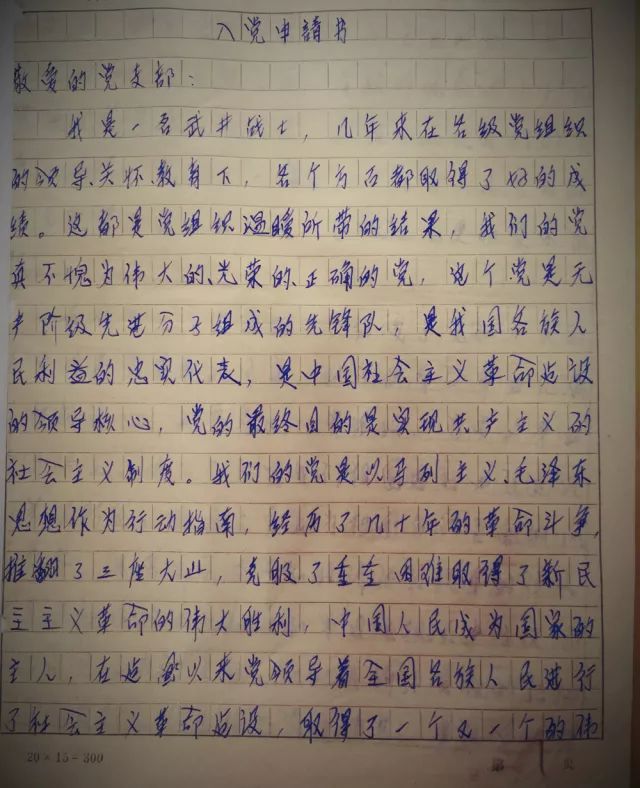 入党申請书
敬爱的党支部：
我是一名武井战士，几年来在各级党组织
的领导、关怀、教育下，各个方面都取得了好的成
绩。这都是党组织温暖所带的结果，我们的党
真不愧为伟大的、光荣的、正确的党，这个党是无
产阶级先进分子组成的先锋队，是我国各族人
民利益的忠实代表，是中国社会主义革命建设
的领导核心，党的最终目的是实现共产主义的
社会主义制度。我们的党是以马列主义、毛泽东
思想作为行动指南，经历了几十年的革命斗争，
推翻了三座大山，克服了重重困难取得了新民
主主义革命的伟大胜利，中国人民成为国家的
主人，在建国以来党领导着全国各族人民进行
了社会主义革命建设，取得了一个又一个的伟
20×15=300
第 页